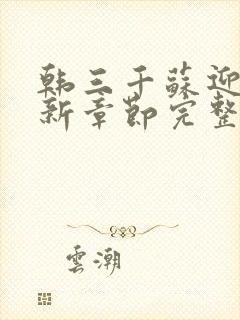 韩三千蘇迎
新章節完整
雲潮